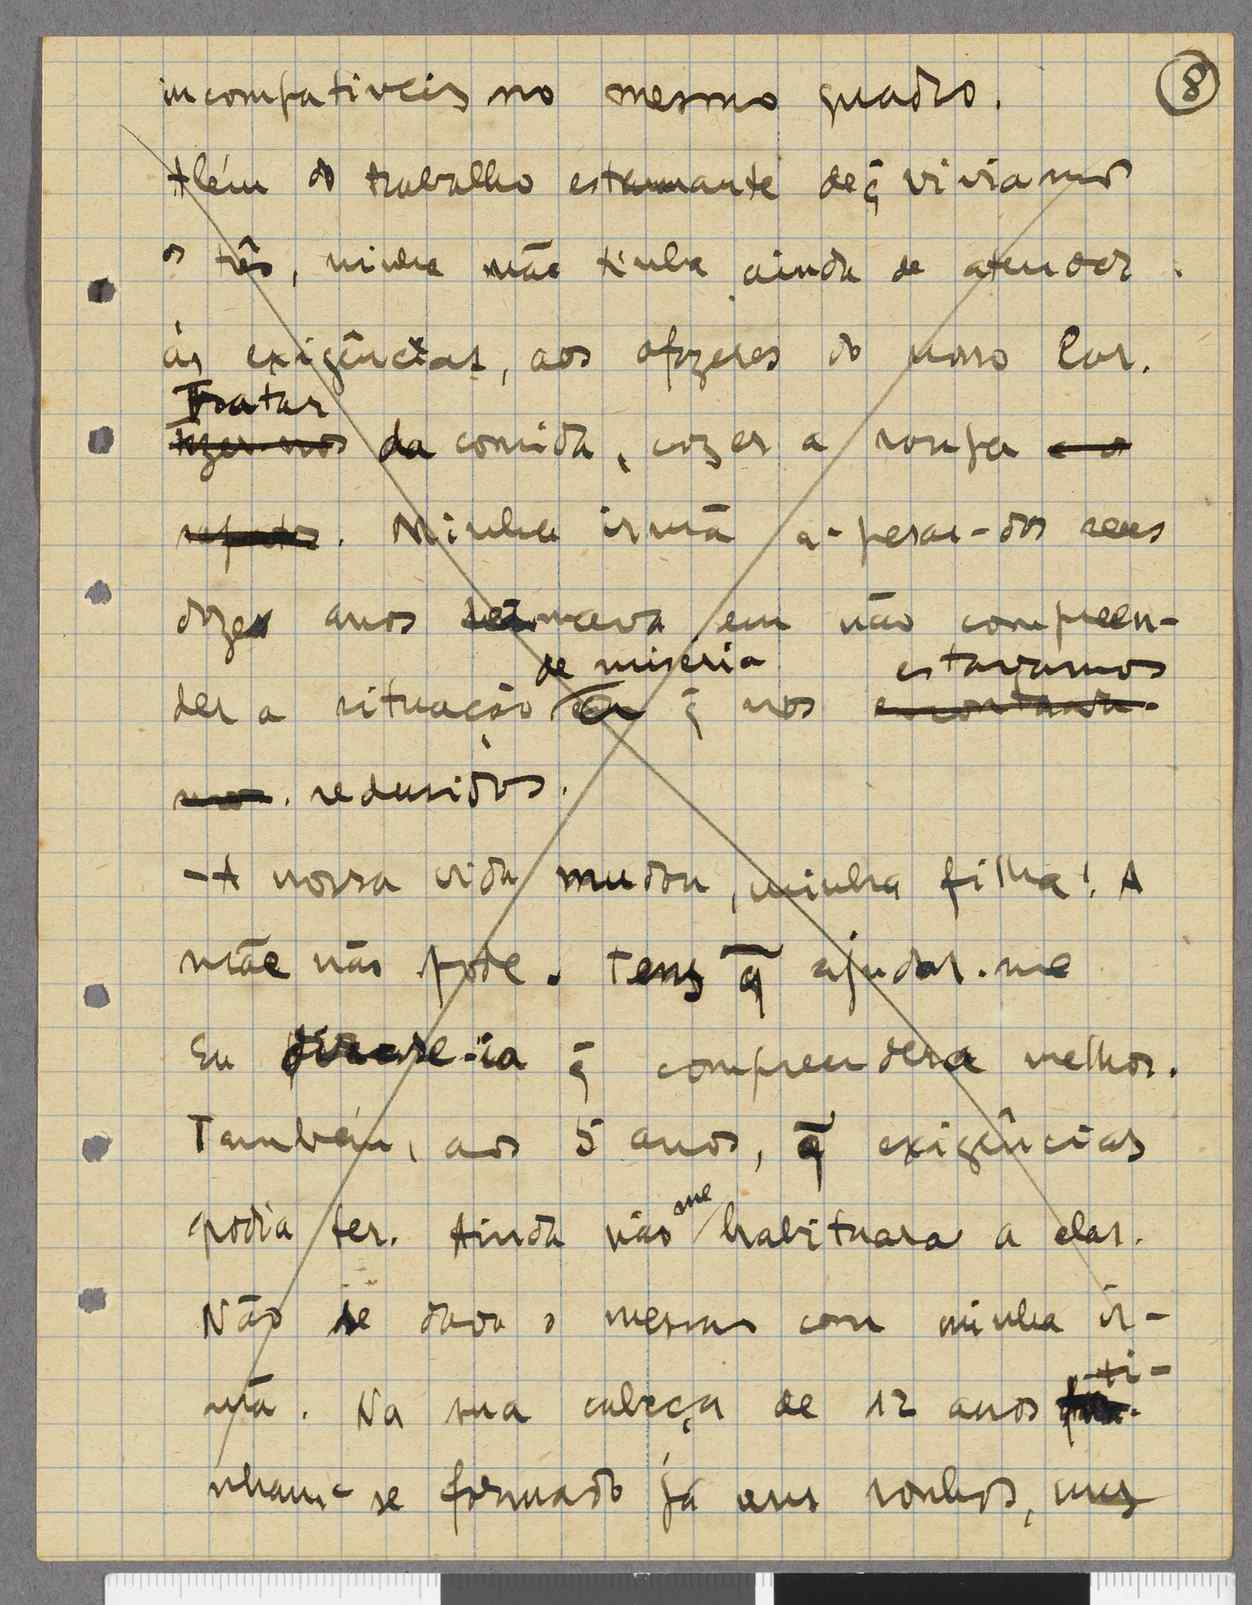 8
incompativeis no mesmo quadro.
Além do trabalho estamante de q̃ viviamos
os três, minha mãe tinha ainda de atender
ás exigências, aos afazeres do nosso lar.
Tratar
da comida, cozer a roupa e o
sapatos. Minha irmã a-pesar-dos seus
doze anos teimava em não compreen-
de miseria estavamos
der a situação em q̃ nos encontrava-
mos. redusidos.
-A nossa vida mudou, minha filha! A
mãe não pode. Tens q̃ ajudar-me
Eu dir-se-ia q̃ compreendera melhor.
Também, aos 5 anos, q̃ exigências
podia ter. Ainda não me habituara a elas.
Não se dava o mesmo com minha ir-
mã. Na sua cabeça de 12 anos ti-
nham-se formado já uns sonhos, uns